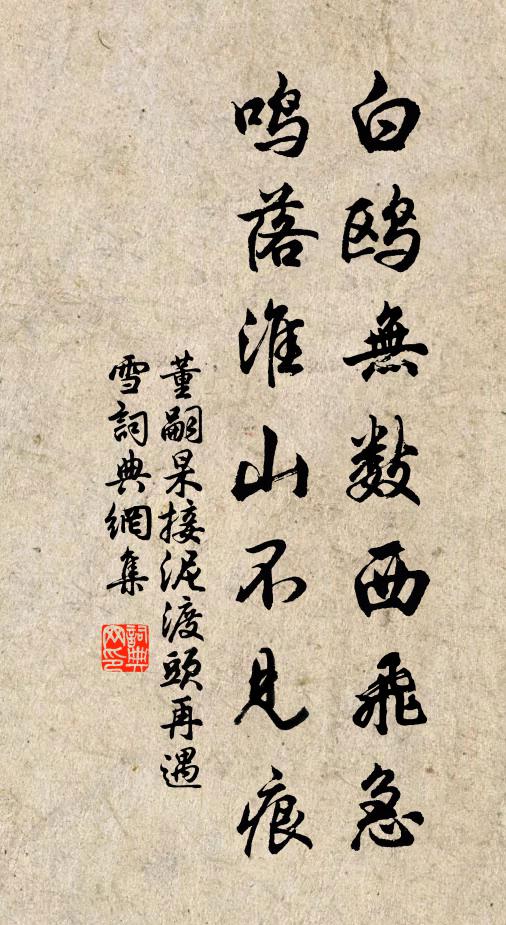 白鷗無數西飛急
鳴落淮山不見痕
董嗣杲接泥渡頭再遇
雪詞典網集
詞典網印